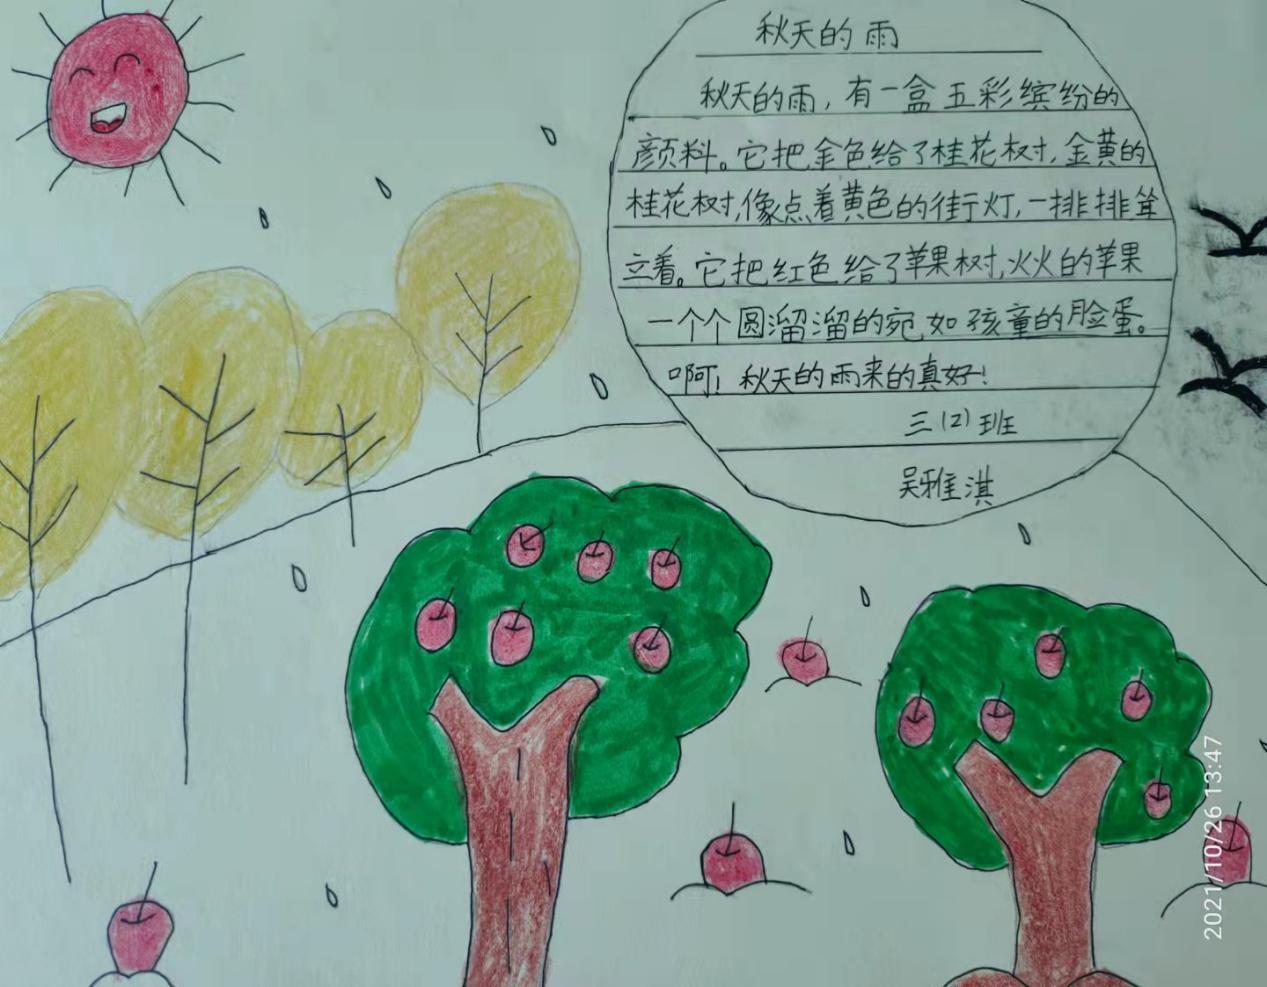 秋天的雨
秋天的雨，有一盒五彩缤纷的
颜料。它把金色给了桂花树，金黄的
桂花树，像点着黄色的街灯，一排排耸
立着。它把红色给了苹果树，火火的苹果
一个个圆溜溜的宛如孩童的脸蛋。
啊！秋天的雨来的真好！
三（2）班
吴雅淇
2021/10/26 13:47